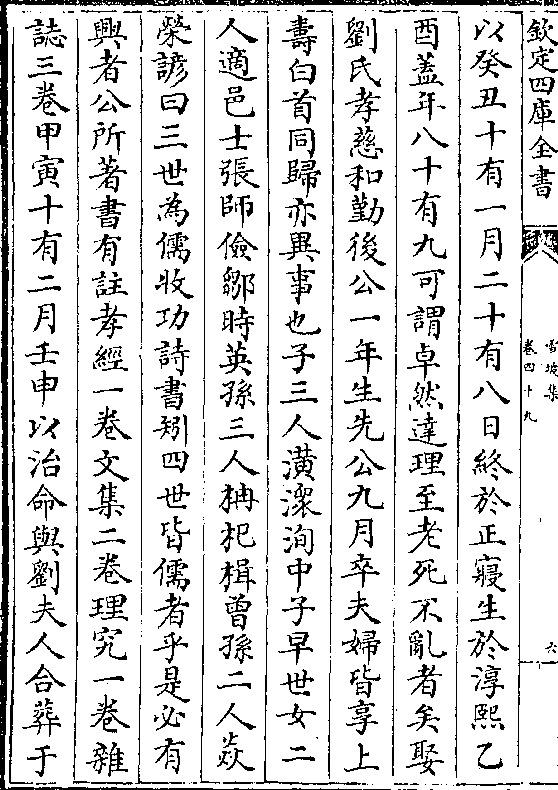 欽定四庫全書
雪坡集
卷四十九
六
以癸丑十有一月二十有八日終於正寢生於淳熙乙
酉蓋年八十有九可謂卓然達理至老死不亂者矣娶
劉氏孝慈和勤後公一年生先公九月卒夫婦皆享上
壽白首同歸亦異事也子三人潢瀤洵中子早世女二
人適邑士張師儉鄒時英孫三人柟杞楫曾孫二人焱
榮諺曰三世為儒收功詩書矧四世皆儒者乎是必有
興者公所著書有註孝經一卷文集二卷理究一卷雜
誌三卷甲寅十有二月壬申以治命與劉夫人合葬于